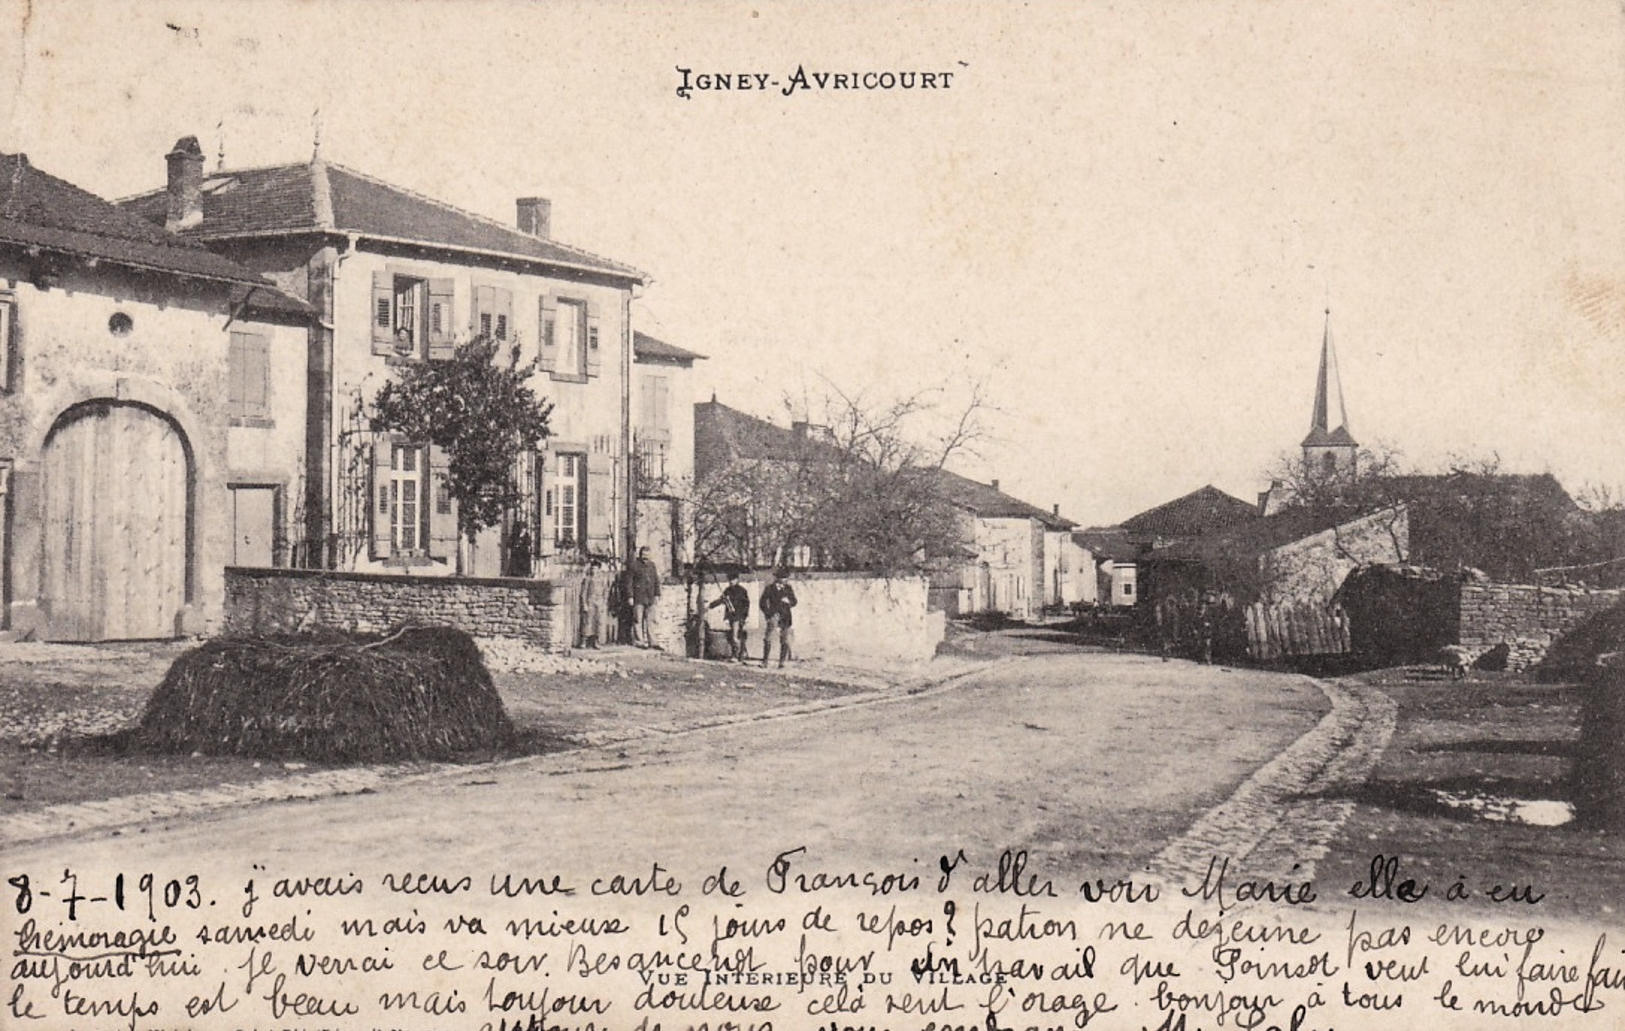 IGNEY-AVRICOURT
8-7-1903. j'avais reçus une carte de François d'aller voir Marie elle à eu
hémoragie samedi mais va mieux 15 jours de repos? patron ne dejeune pas encore
aujourd'hui. je verrai ce soir. Besancenot pour un travail que Poinsot veut lui faire fai
VUE INTÉRIEURE DU VILLAGE
le temps est beau mais toujour douteuse celà sent l'orage. bonjour à tous le monde
de nous vous